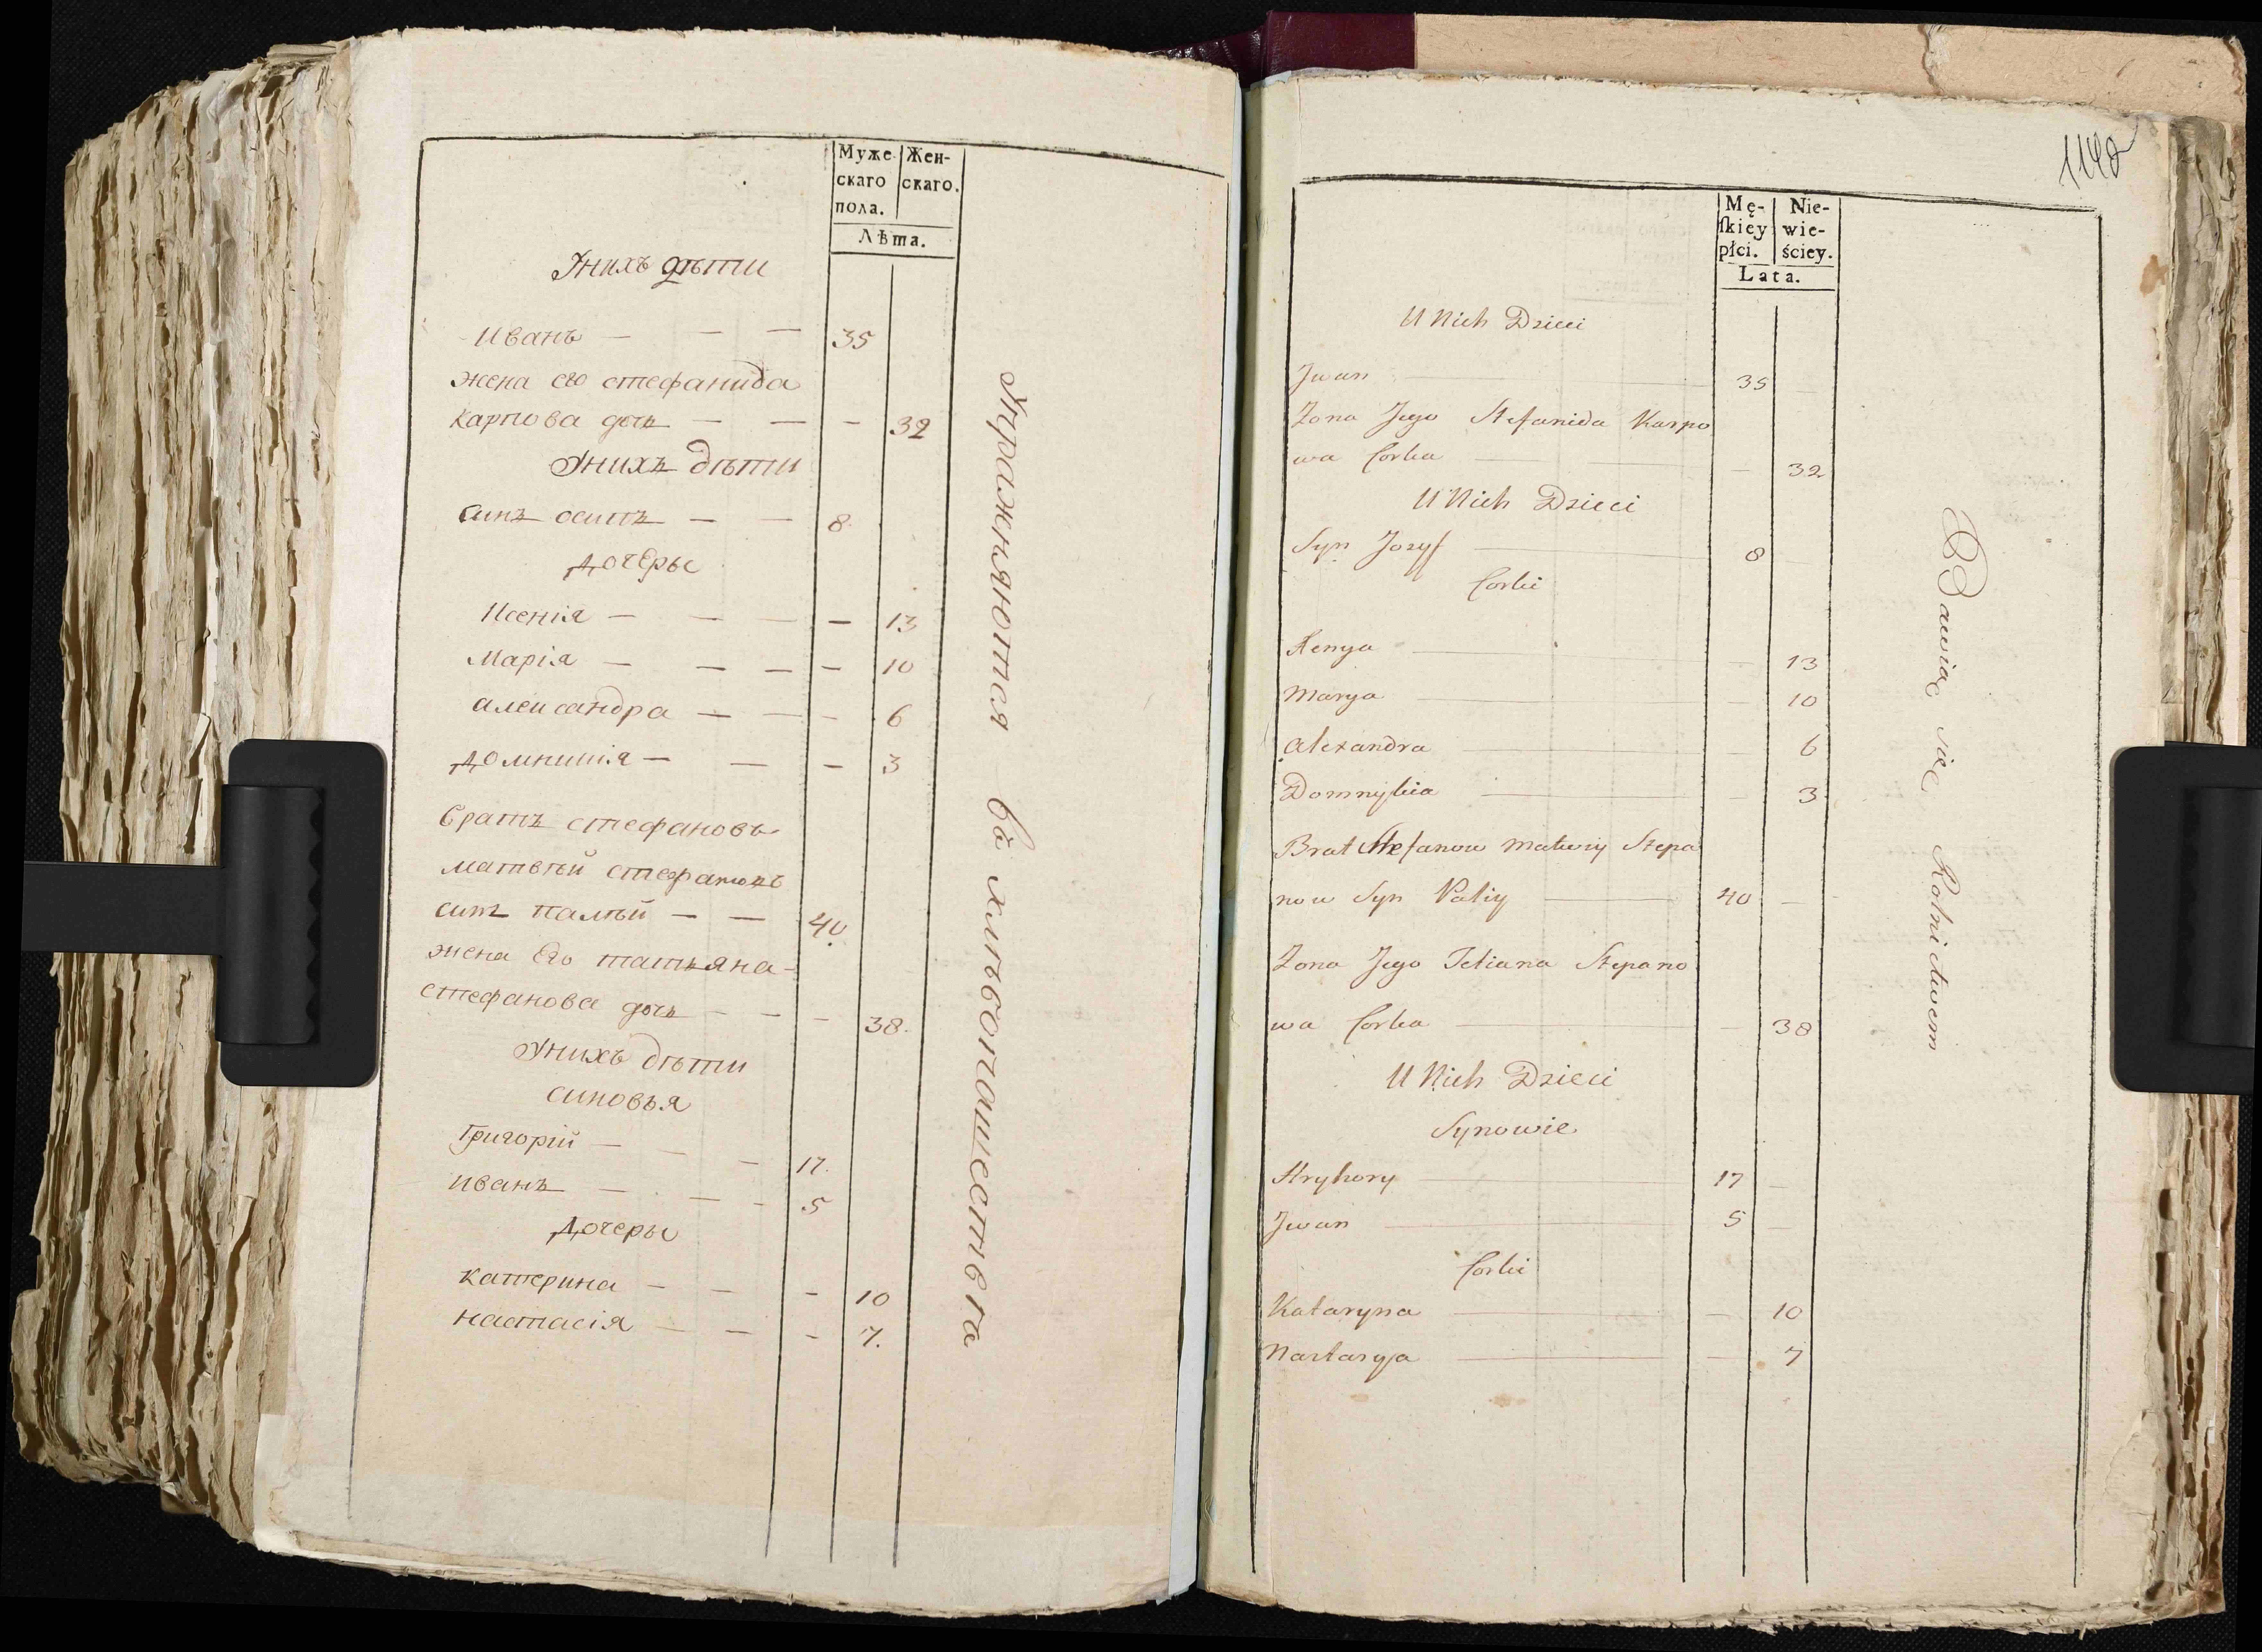 Муже-
скаго
пола.
Жен-
скаго.
Лѣта.
Унихъ дѣти
Иванъ — — — 35
жена его стефанида
карпова дочь — — — 32
Унихъ дѣти
синъ осипъ — — 8.
дочеры
Ксенія — — — — 13
Марія — — — — 10
александра — — — 6
домникія — — — 3
братъ стефановъ
матвѣй стефановъ
синъ палѣй — — 40
жена Его татьяна
стефанова дочь — — — 38.
Унихъ дѣти
синовья
Григорій — — — 17.
иванъ — — — 5
дочеры
катерина — — — 10
настасія — — — 7.
Упражняются въ хлѣбопашества
1142
Mę-
ſkiey
płci.
Nie-
wie-
ściey.
Lata.
U Nich Dzieci
Jwan 35
Zona Jego Stefanida Karpo
wa Corka 32
U Nich Dzieci
Syn Jozyf 8
Corki
Xenya 13
Marya 10
Alexandra 6
Domnykia 3
Brat Stefanow Matwiy Stepa
now Syn Paliy 40
Zona Jego Tetiana Stepano
wa Corka 38
U Nich Dzieci
Synowie
Hryhory 17
Jwan 5
Corki
Kataryna 10
Nastasya 7
Bawią się Rolnictwem